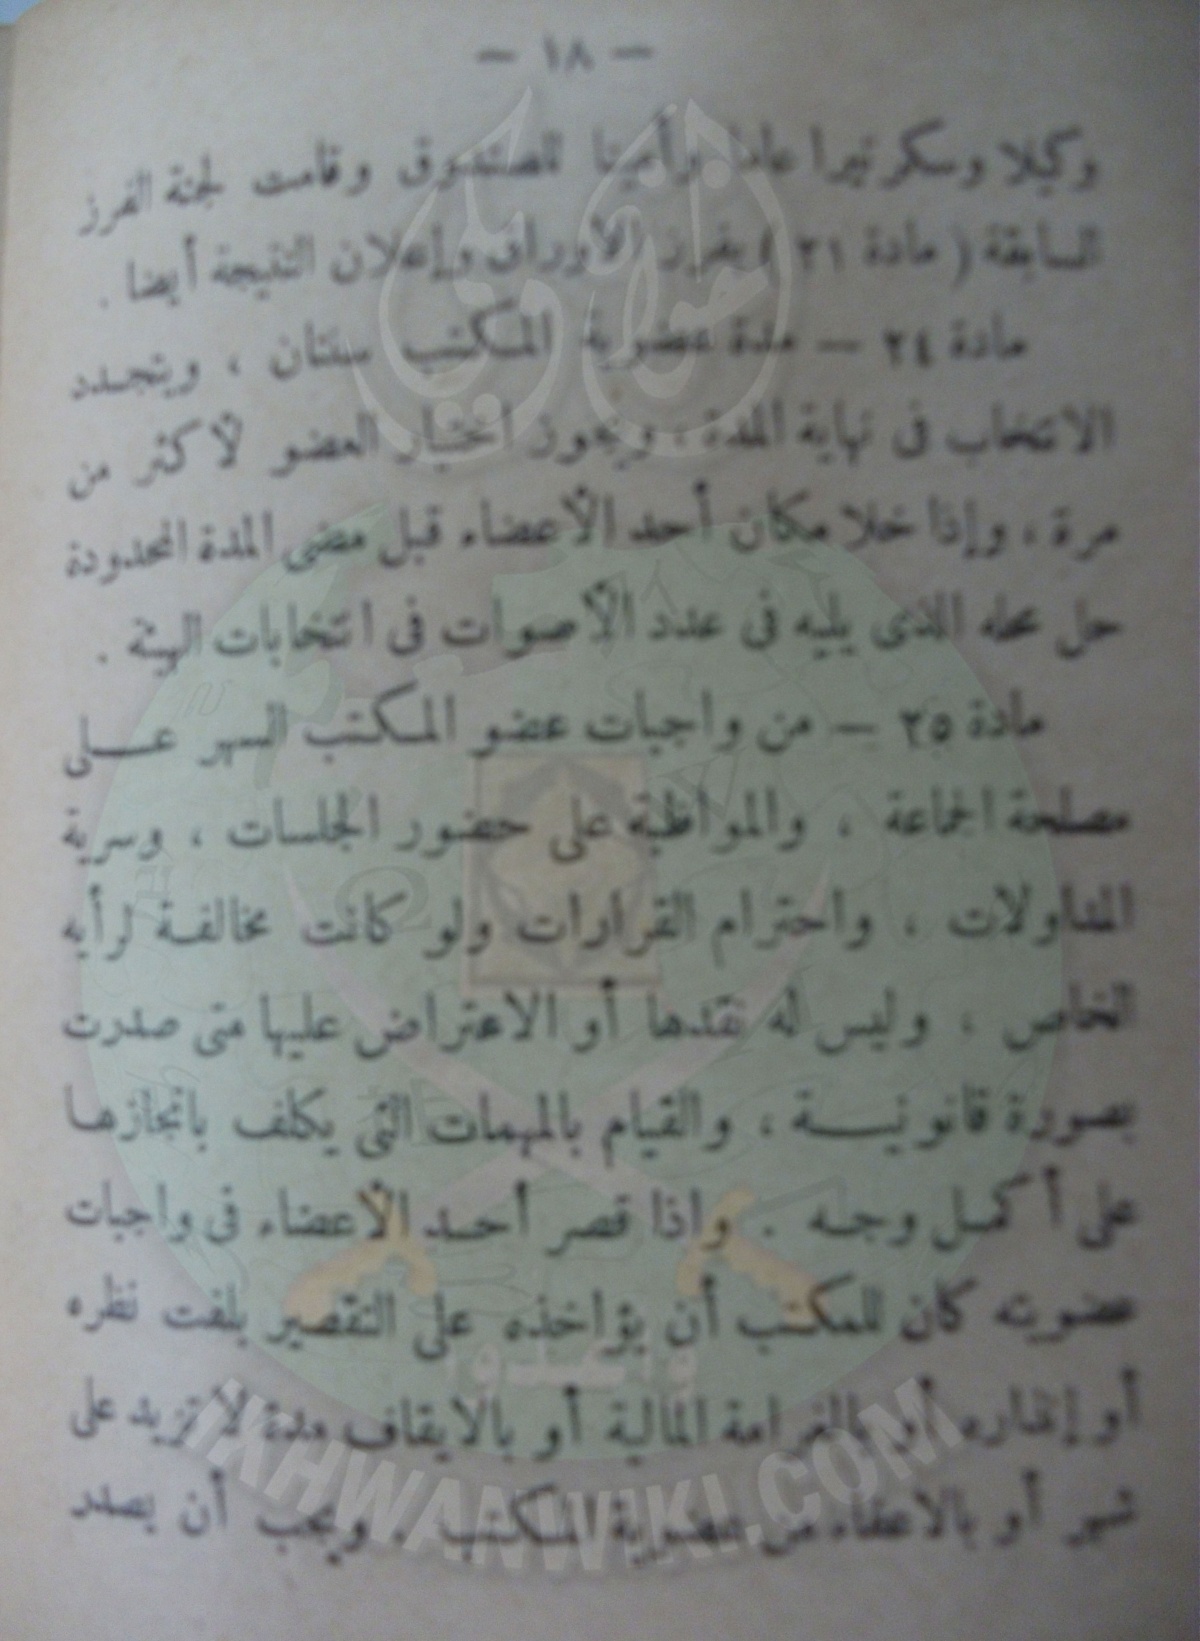 — ١٨ —
وكيلا وسكرتيرا عاما وأمينا للصندوق وقامت لجنة الفرز
السابقة ( مادة ٢١ ) بفرز الأوراق وإعلان النتيجة أيضا .
مادة ٢٤ — مدة عضوية المكتب سنتان ، ويتجدد
الانتخاب فى نهاية المدة ، ويجوز اختيار العضو لأكثر من
مرة ، وإذا خلا مكان أحد الأعضاء قبل مضى المدة المحدودة
حل محله الذى يليه فى عدد الأصوات فى انتخابات الهيئة .
مادة ٢٥ — من واجبات عضو المكتب السهر على
مصلحة الجماعة ، والمواظبة على حضور الجلسات ، وسرية
المداولات ، واحترام القرارات ولو كانت مخالفة لرأيه
الخاص ، وليس له نقدها أو الاعتراض عليها متى صدرت
بصورة قانونية ، والقيام بالمهمات التى يكلف بانجازها
على أكمل وجه . واذا قصر أحد الأعضاء فى واجبات
عضويته كان للمكتب أن يؤاخذه على التقصير بلفت نظره
أو إنذاره أو بالغرامة المالية أو بالايقاف مدة لا تزيد على
شهر أو بالاعفاء من عضوية المكتب ، ويجب أن يصدر
إخوان ويكي
وأعدوا
IKHWANWIKI.COM